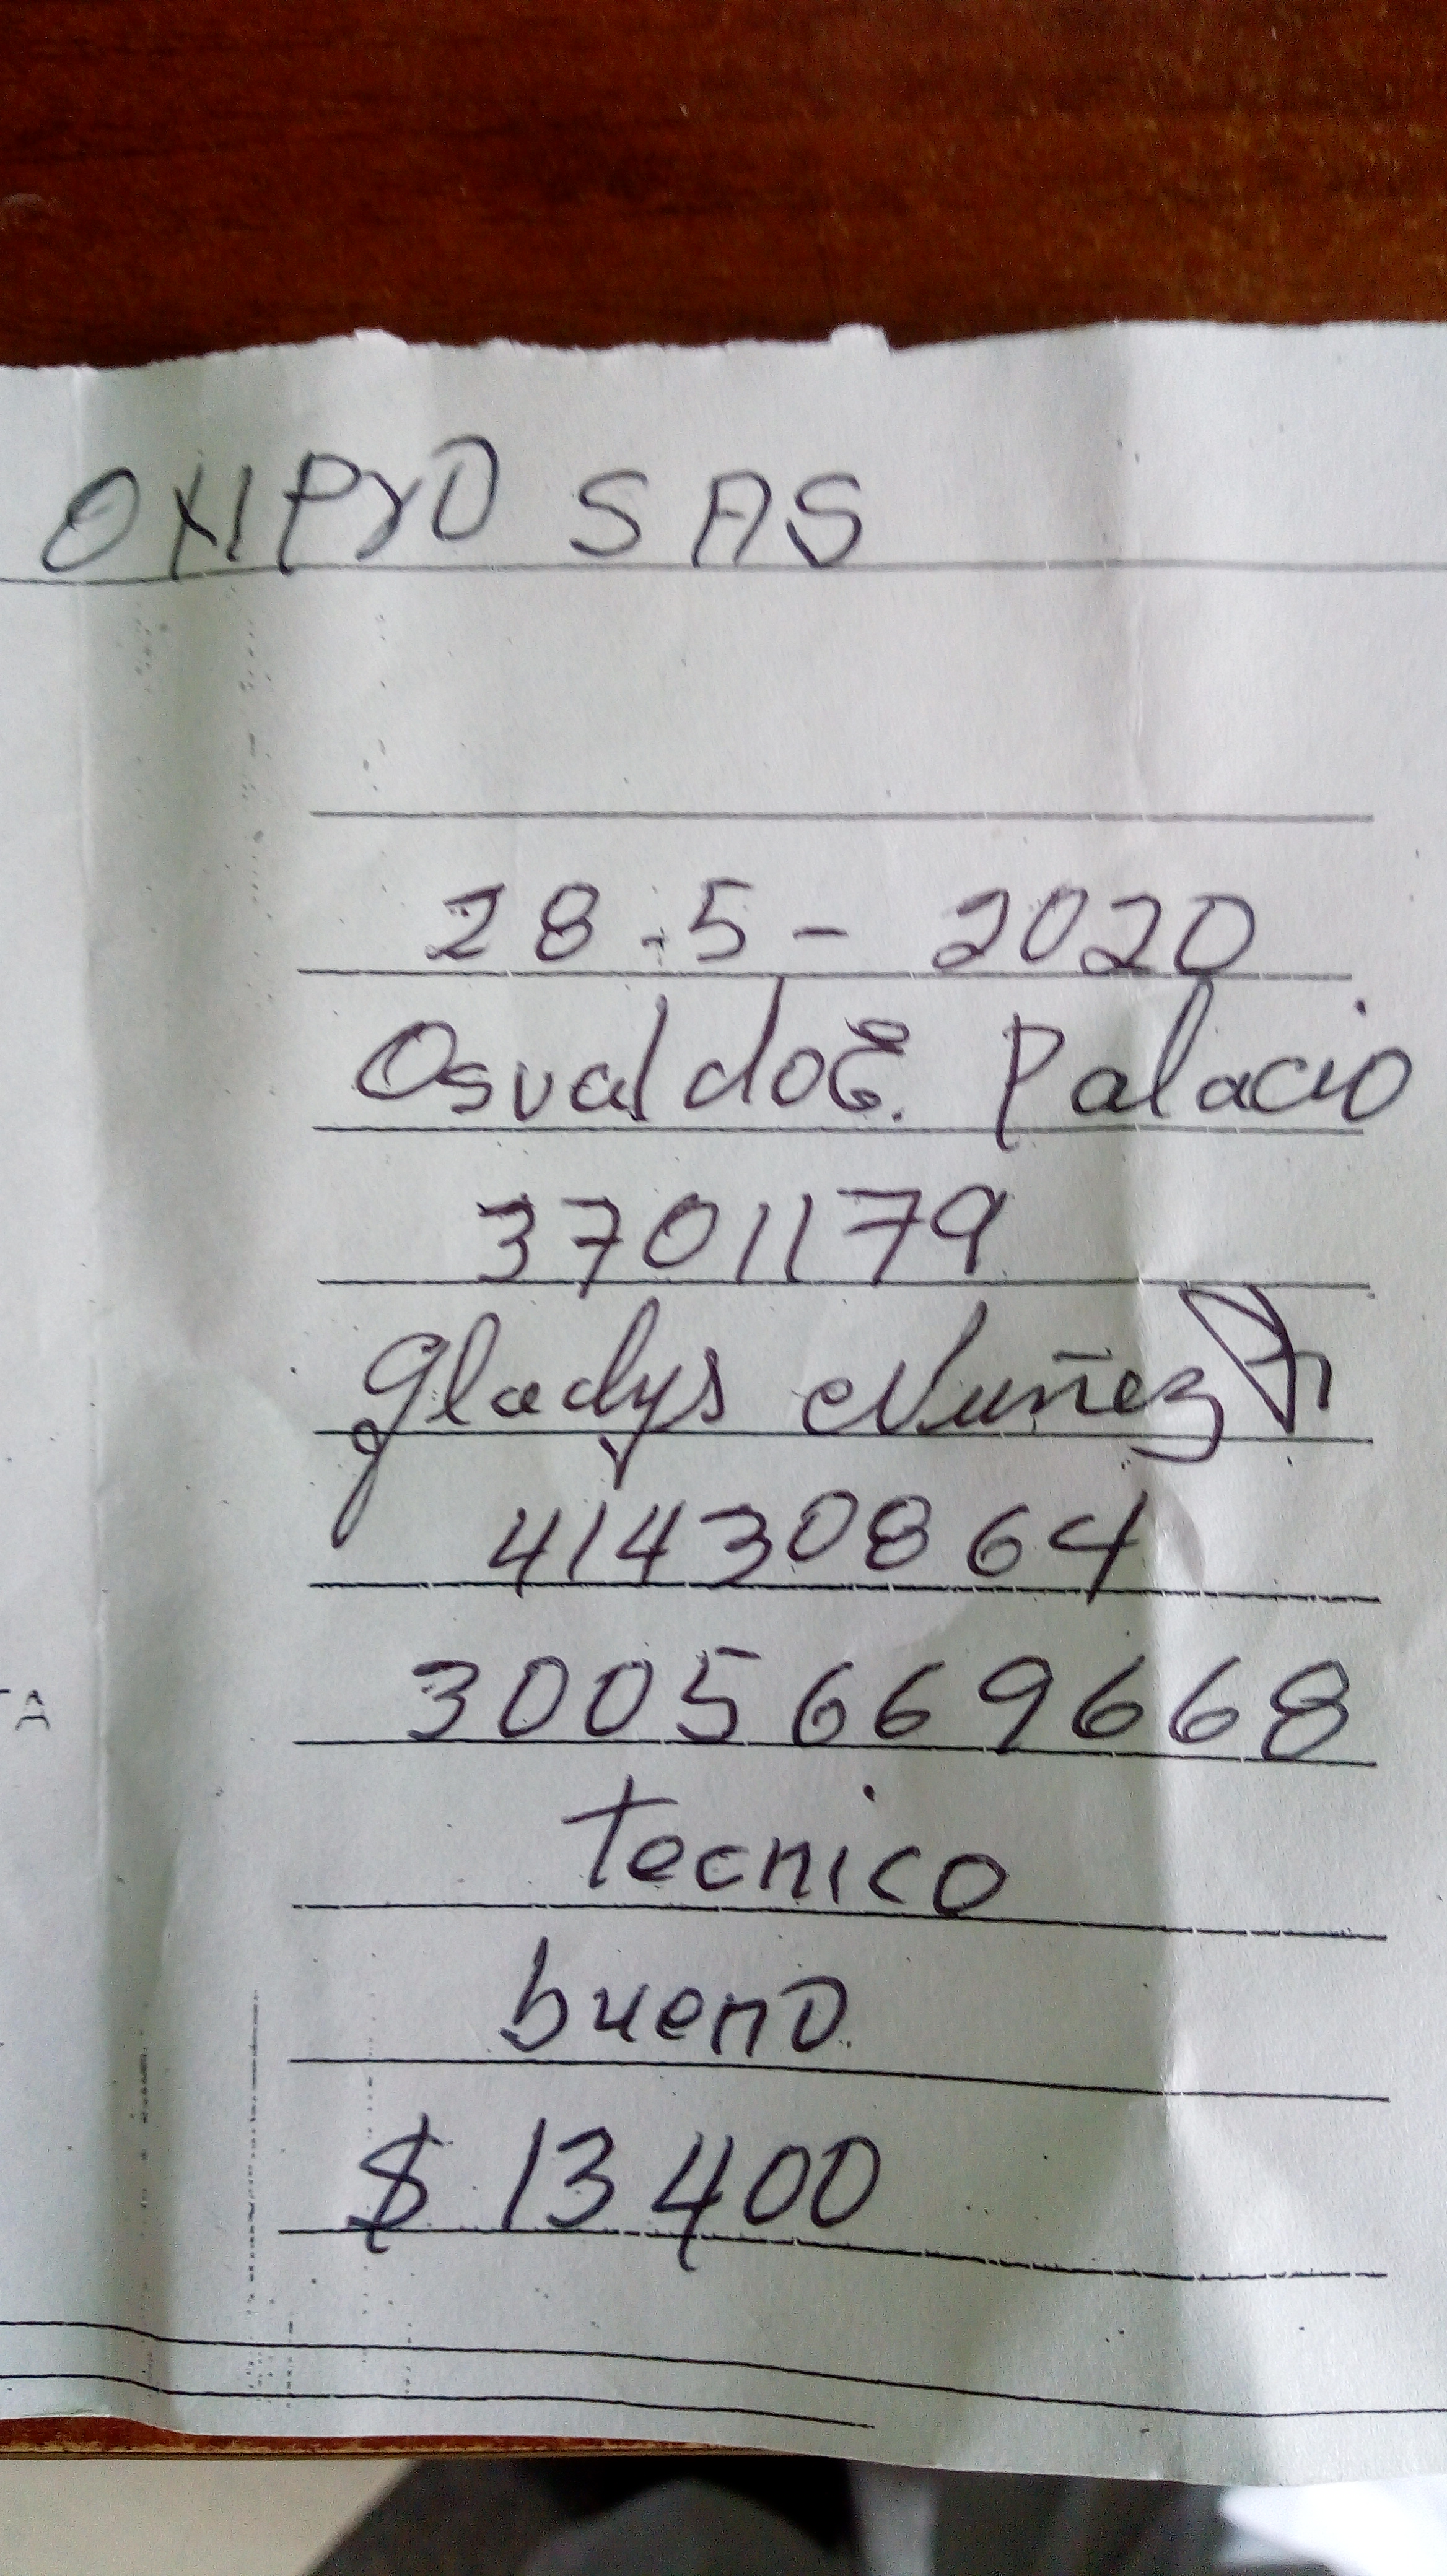 OXIPrO SAS
28-5-2020
Osvaldo E. Palacio
3701179
Gladys Nuñez
41430864
3005669668
tecnico
bueno
$ 13400
TA